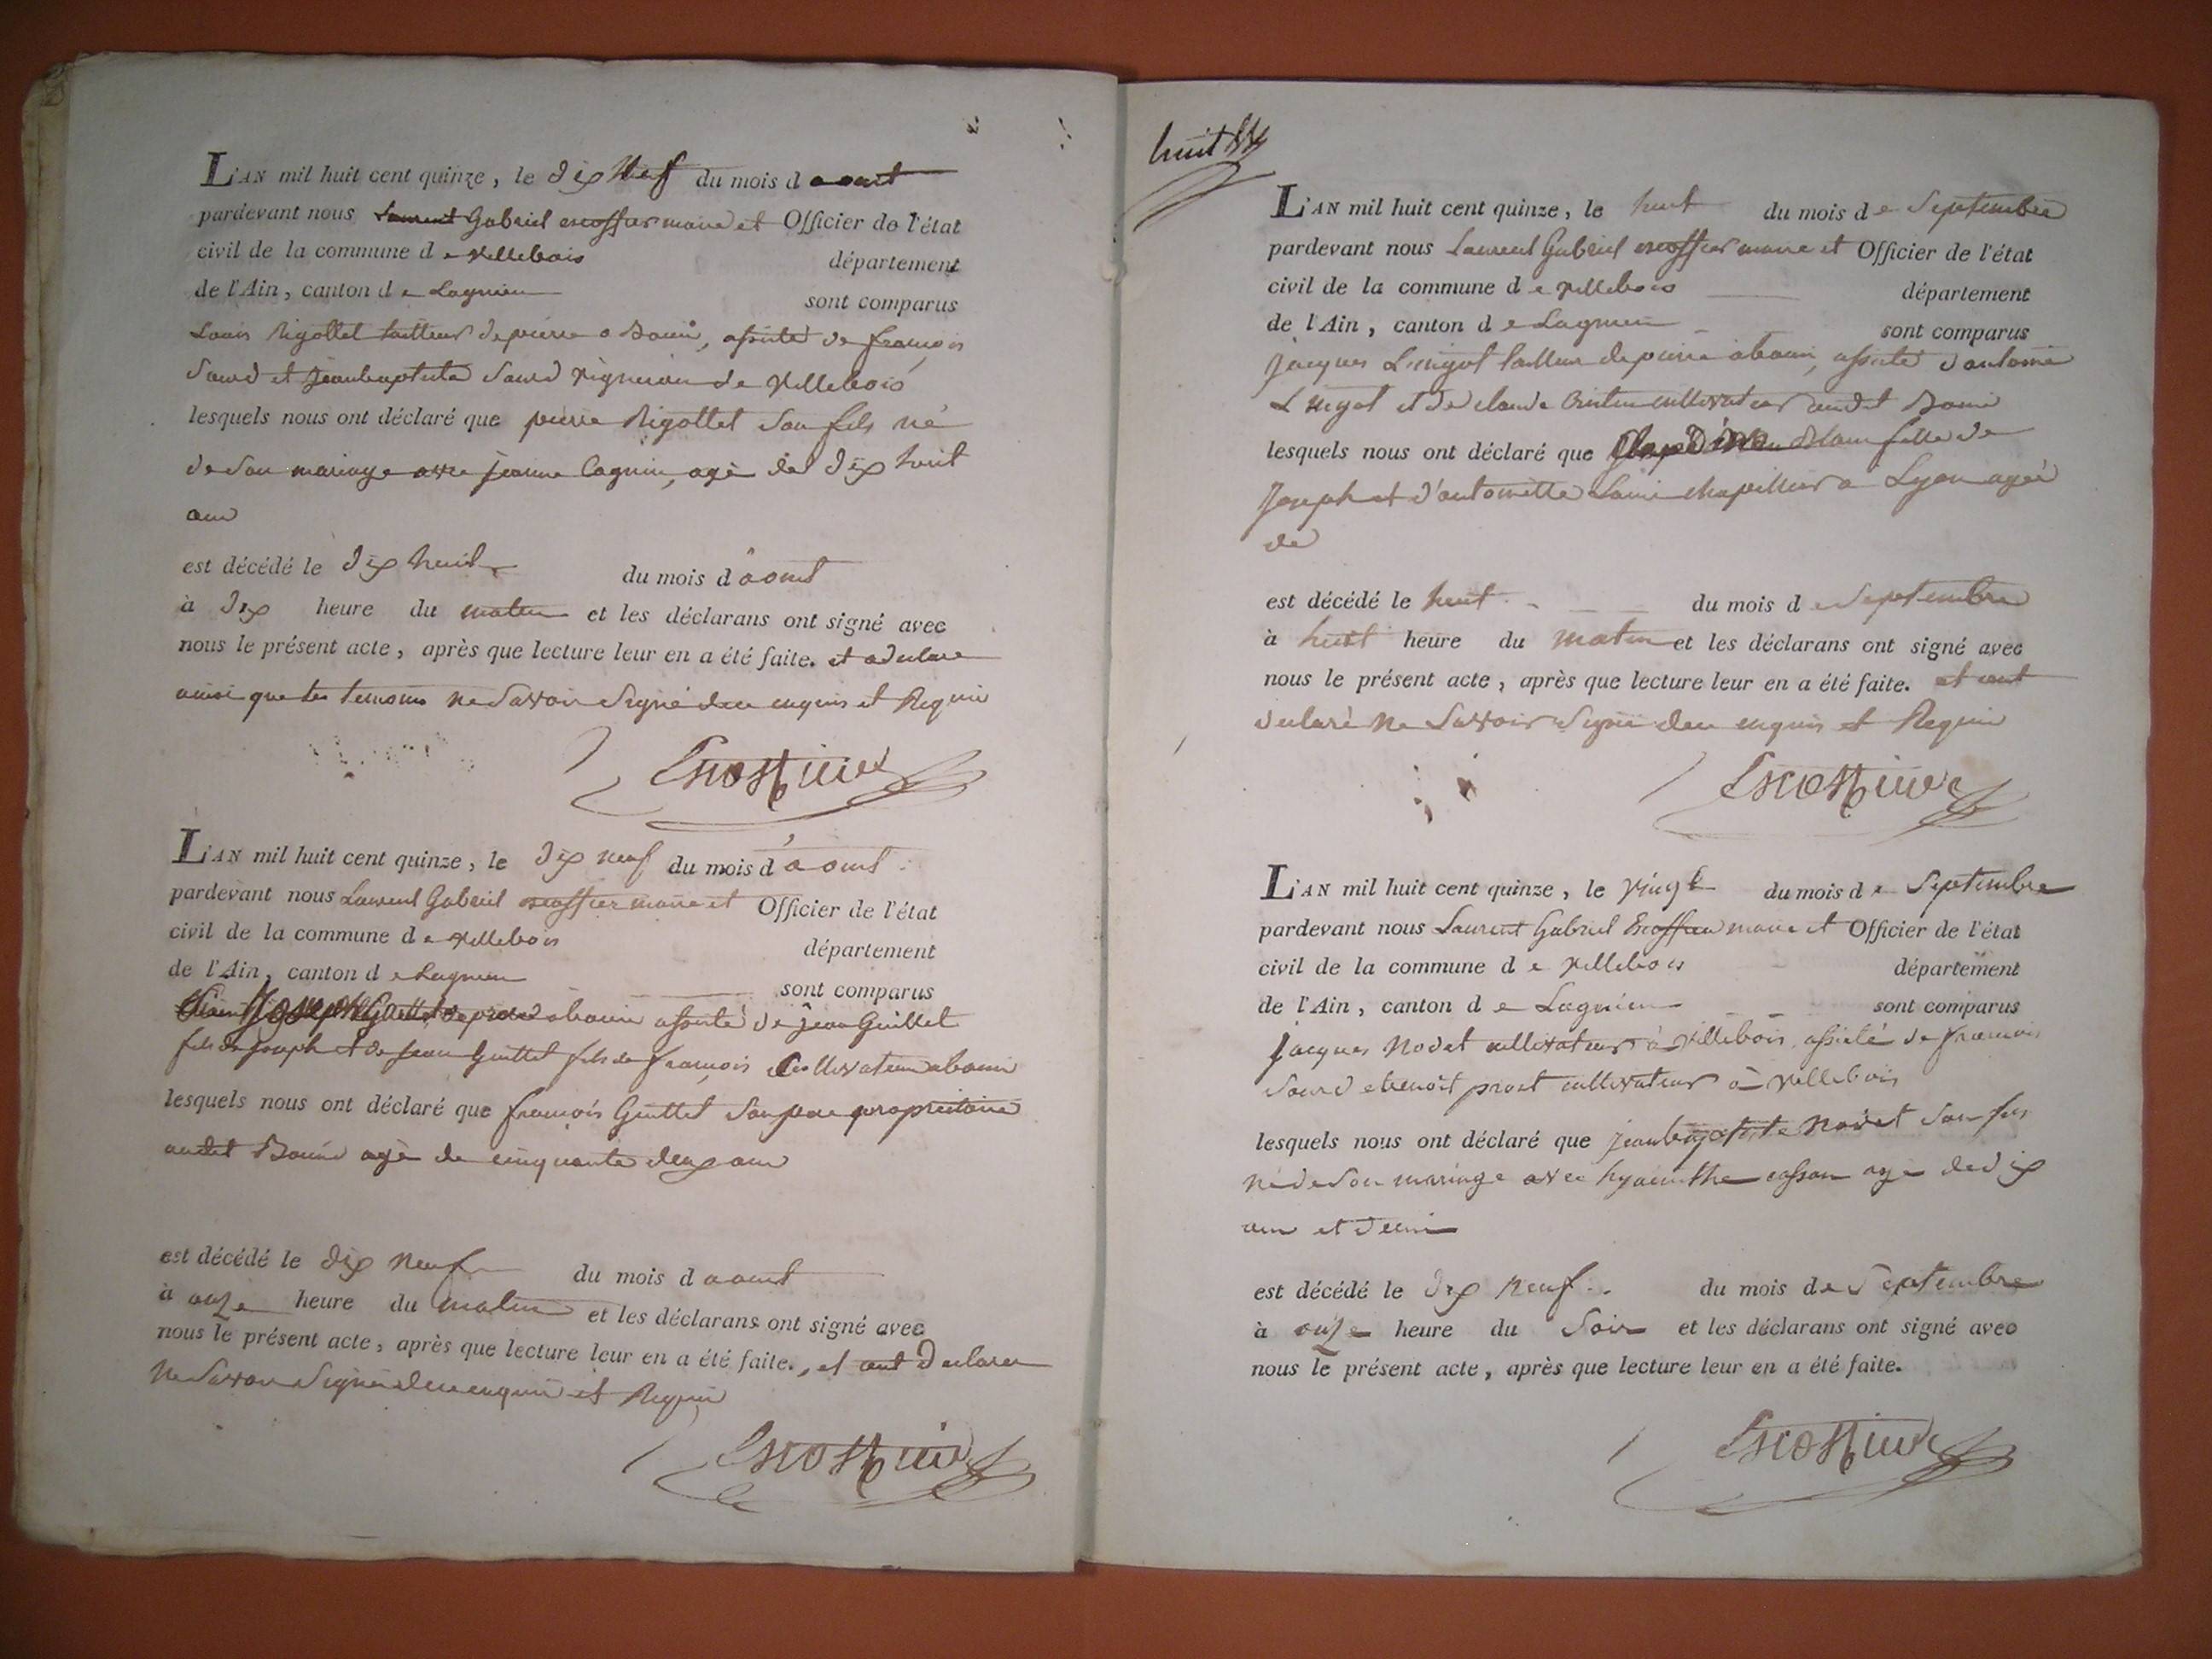 L'AN mil huit cent quinze, le dix Neuf du mois d aout
pardevant nous Laurent Gabriel escoffier maire et Officier de l'état
civil de la commune d e villebois département
de l'Ain, canton d e Lagnieu sont comparus
Louis Rigollet tailleur de pierre a Bouis, assisté de françois
Sourd et jeanbaptiste Sourd vigneron de villebois
lesquels nous ont déclaré que pierre Rigollet Son fils né
de Son mariage avec jeanne Cagnin, agé de dix huit
ans
est décédé le dix huit du mois d aout
à dix heure du matin et les déclarans ont signé avec
nous le présent acte, après que lecture leur en a été faite. et a declare
ainsi que les temoins ne Savoir Signé de ce enquis et Requis
Escoffier
L'AN mil huit cent quinze, le dix neuf du mois d'aout
pardevant nous Laurent Gabriel escoffier maire et Officier de l'état
civil de la commune d e villebois département
de l'Ain, canton d e Lagnieu sont comparus
Joseph assisté de jean Guillet
fils de joseph et de jean Guillet fils de françois Cultivateur abouis
lesquels nous ont déclaré que françois Guillet Son pere propriétaire
audit Bouis agé de cinquante deux ans
est décédé le dix neuf du mois d aout
à onze heure du matin et les déclarans ont signé avec
nous le présent acte, après que lecture leur en a été faite., et ont declarer
ne Savoir Signé de ce enquis et Requis
Escoffier
huit
L'AN mil huit cent quinze, le huit du mois d e Septembre
pardevant nous Laurent Gabriel escoffier maire et Officier de l'état
civil de la commune d e villebois département
de l'Ain, canton d e Lagnieu sont comparus
jacques Longot tailleur de pierre abouis, assisté d'antoine
Longot et de claude cultivateur audit Bouis
lesquels nous ont déclaré que fille de
joseph et d'antoinette chapellier a Lyon agée
de
est décédé le huit du mois d e Septembre
à huit heure du matin et les déclarans ont signé avec
nous le présent acte, après que lecture leur en a été faite. et ont
declaré ne Savoir Signé de ce enquis et Requis
Escoffier
L'AN mil huit cent quinze, le vingt du mois d e Septembre
pardevant nous Laurent Gabriel Escoffier maire et Officier de l'état
civil de la commune d e villebois département
de l'Ain, canton d e Lagnieu sont comparus
jacques Nodet cultivateur à villebois assisté de francois
Sourd et benoit prost cultivateur à villebois
lesquels nous ont déclaré que jeanbaptiste Nodet Son fils
né de Son mariage avec hyacinthe cassan agé de dix
ans et demi
est décédé le dix neuf du mois de Septembre
à onze heure du Soir et les déclarans ont signé avec
nous le présent acte, après que lecture leur en a été faite.
Escoffier